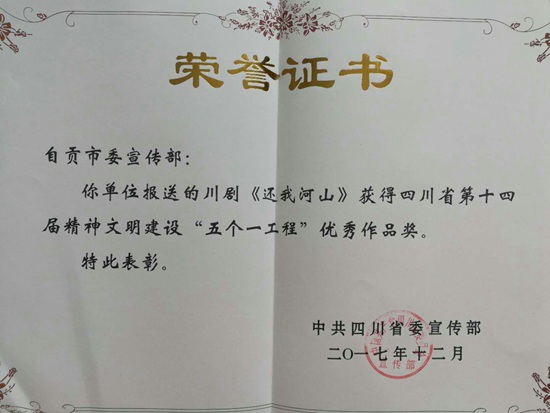 荣誉证书
自贡市委宣传部：
你单位报送的川剧《还我河山》获得四川省第十四
届精神文明建设“五个一工程”优秀作品奖。
特此表彰。
中共四川省委宣传部
二〇一七年十二月
宣传部